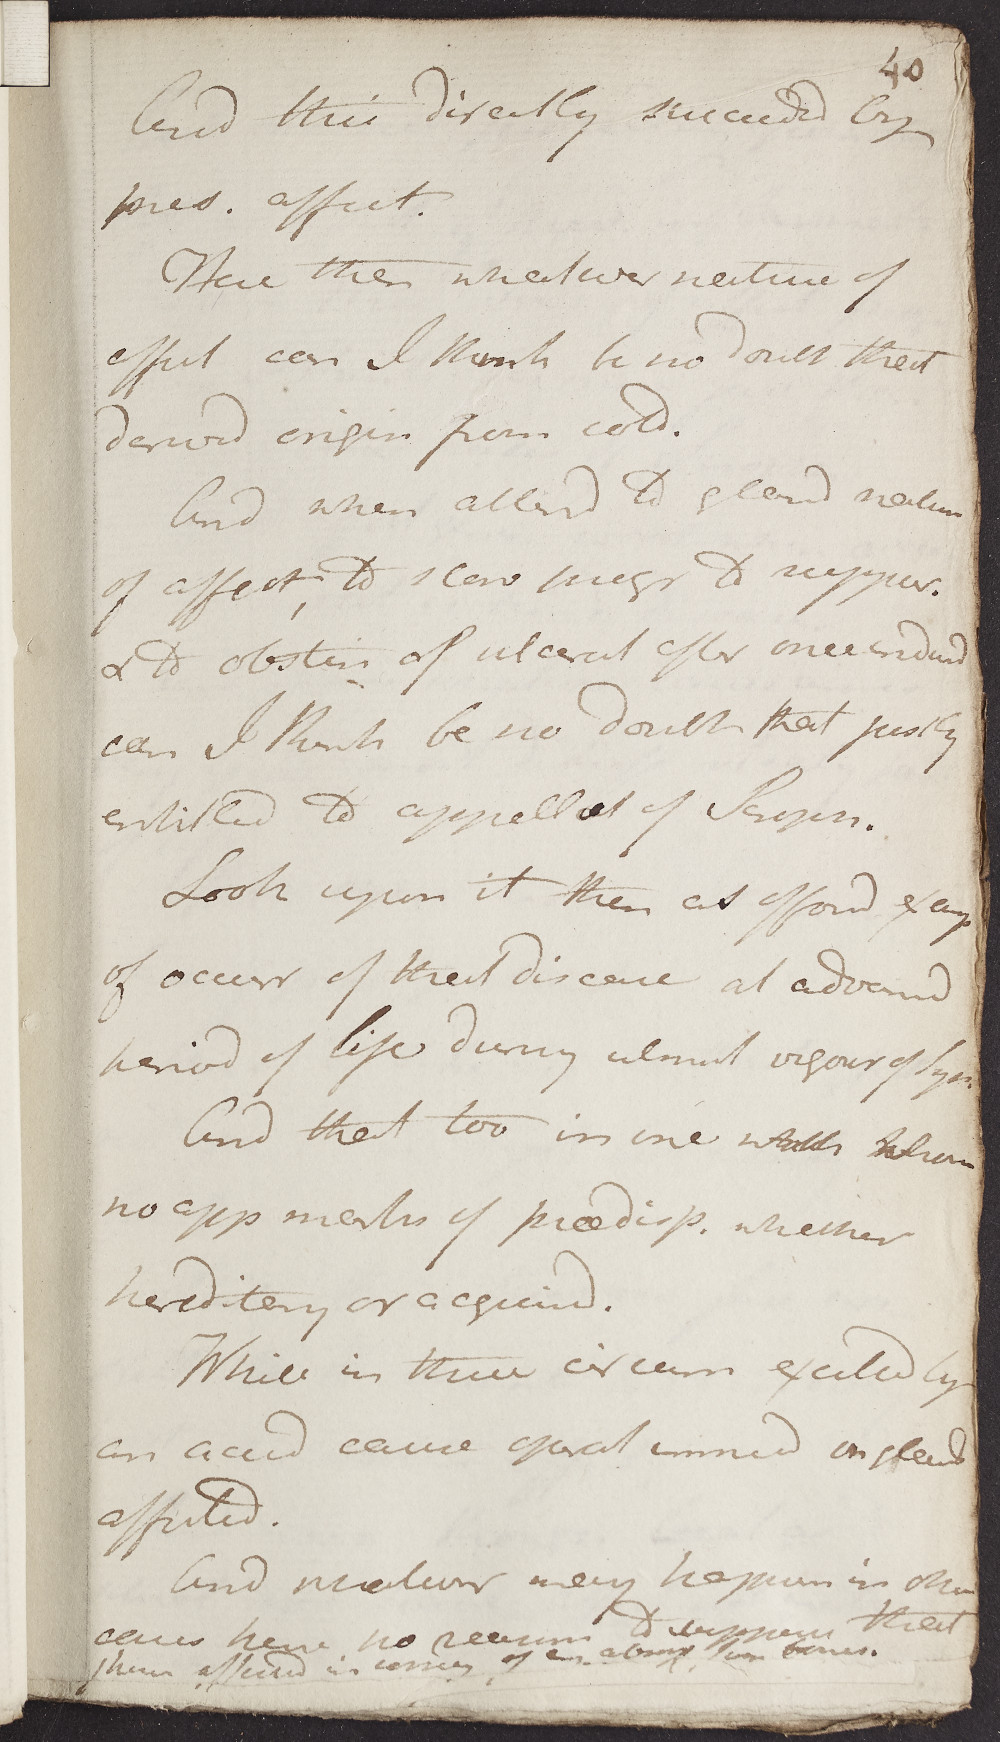 40
And this directly succeeded by
pres. affect.
Here then whatever nature of
affect can I think be no doubt that
derived origin from cold.
And when attend to gland nature
of affect, to slow progr to suppur.
& to obstin of ulcerat after once indued
can I think be no doubt that justly
entitled to appellat of Scroph.
Look upon it then as afford examp
of occurr of that disease at advanced
period of life during utmost vigour of sys.
And that too in one with whom
no app marks of prædisp. whether
hereditary or acquired.
While in these circum excited by
an accid cause operat immed on gland
affected.
And whatever may happen in other
cases here no reason to suppose that
affected in of an absorp from